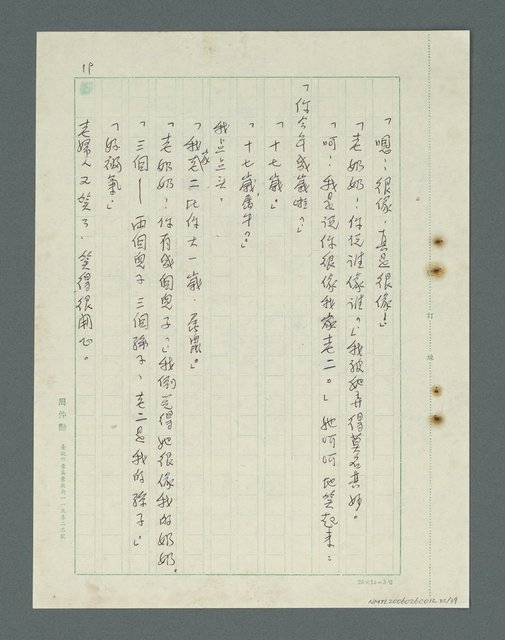 19
「嗯！很像，真是很像！」
「老奶奶！你說誰像誰？」我被她弄得莫名其妙。
「呵！我是说你很像我家老二。」她呵呵地笑起來：
「你今年幾歲啦？」
「十七歲。」
「十七歲屬牛？」
我点点头。
「我家老二比你大一歲，屬鼠。」
「老奶奶！你有幾個兒子？」我倒覺得她很像我的奶奶。
「三個——兩個兒子三個孫子、老二是我的孫子。」
「好福氣！」
老婦人又笑了、笑得很開心。
訂
線
周仲勳
NMTL20060260012 22/39